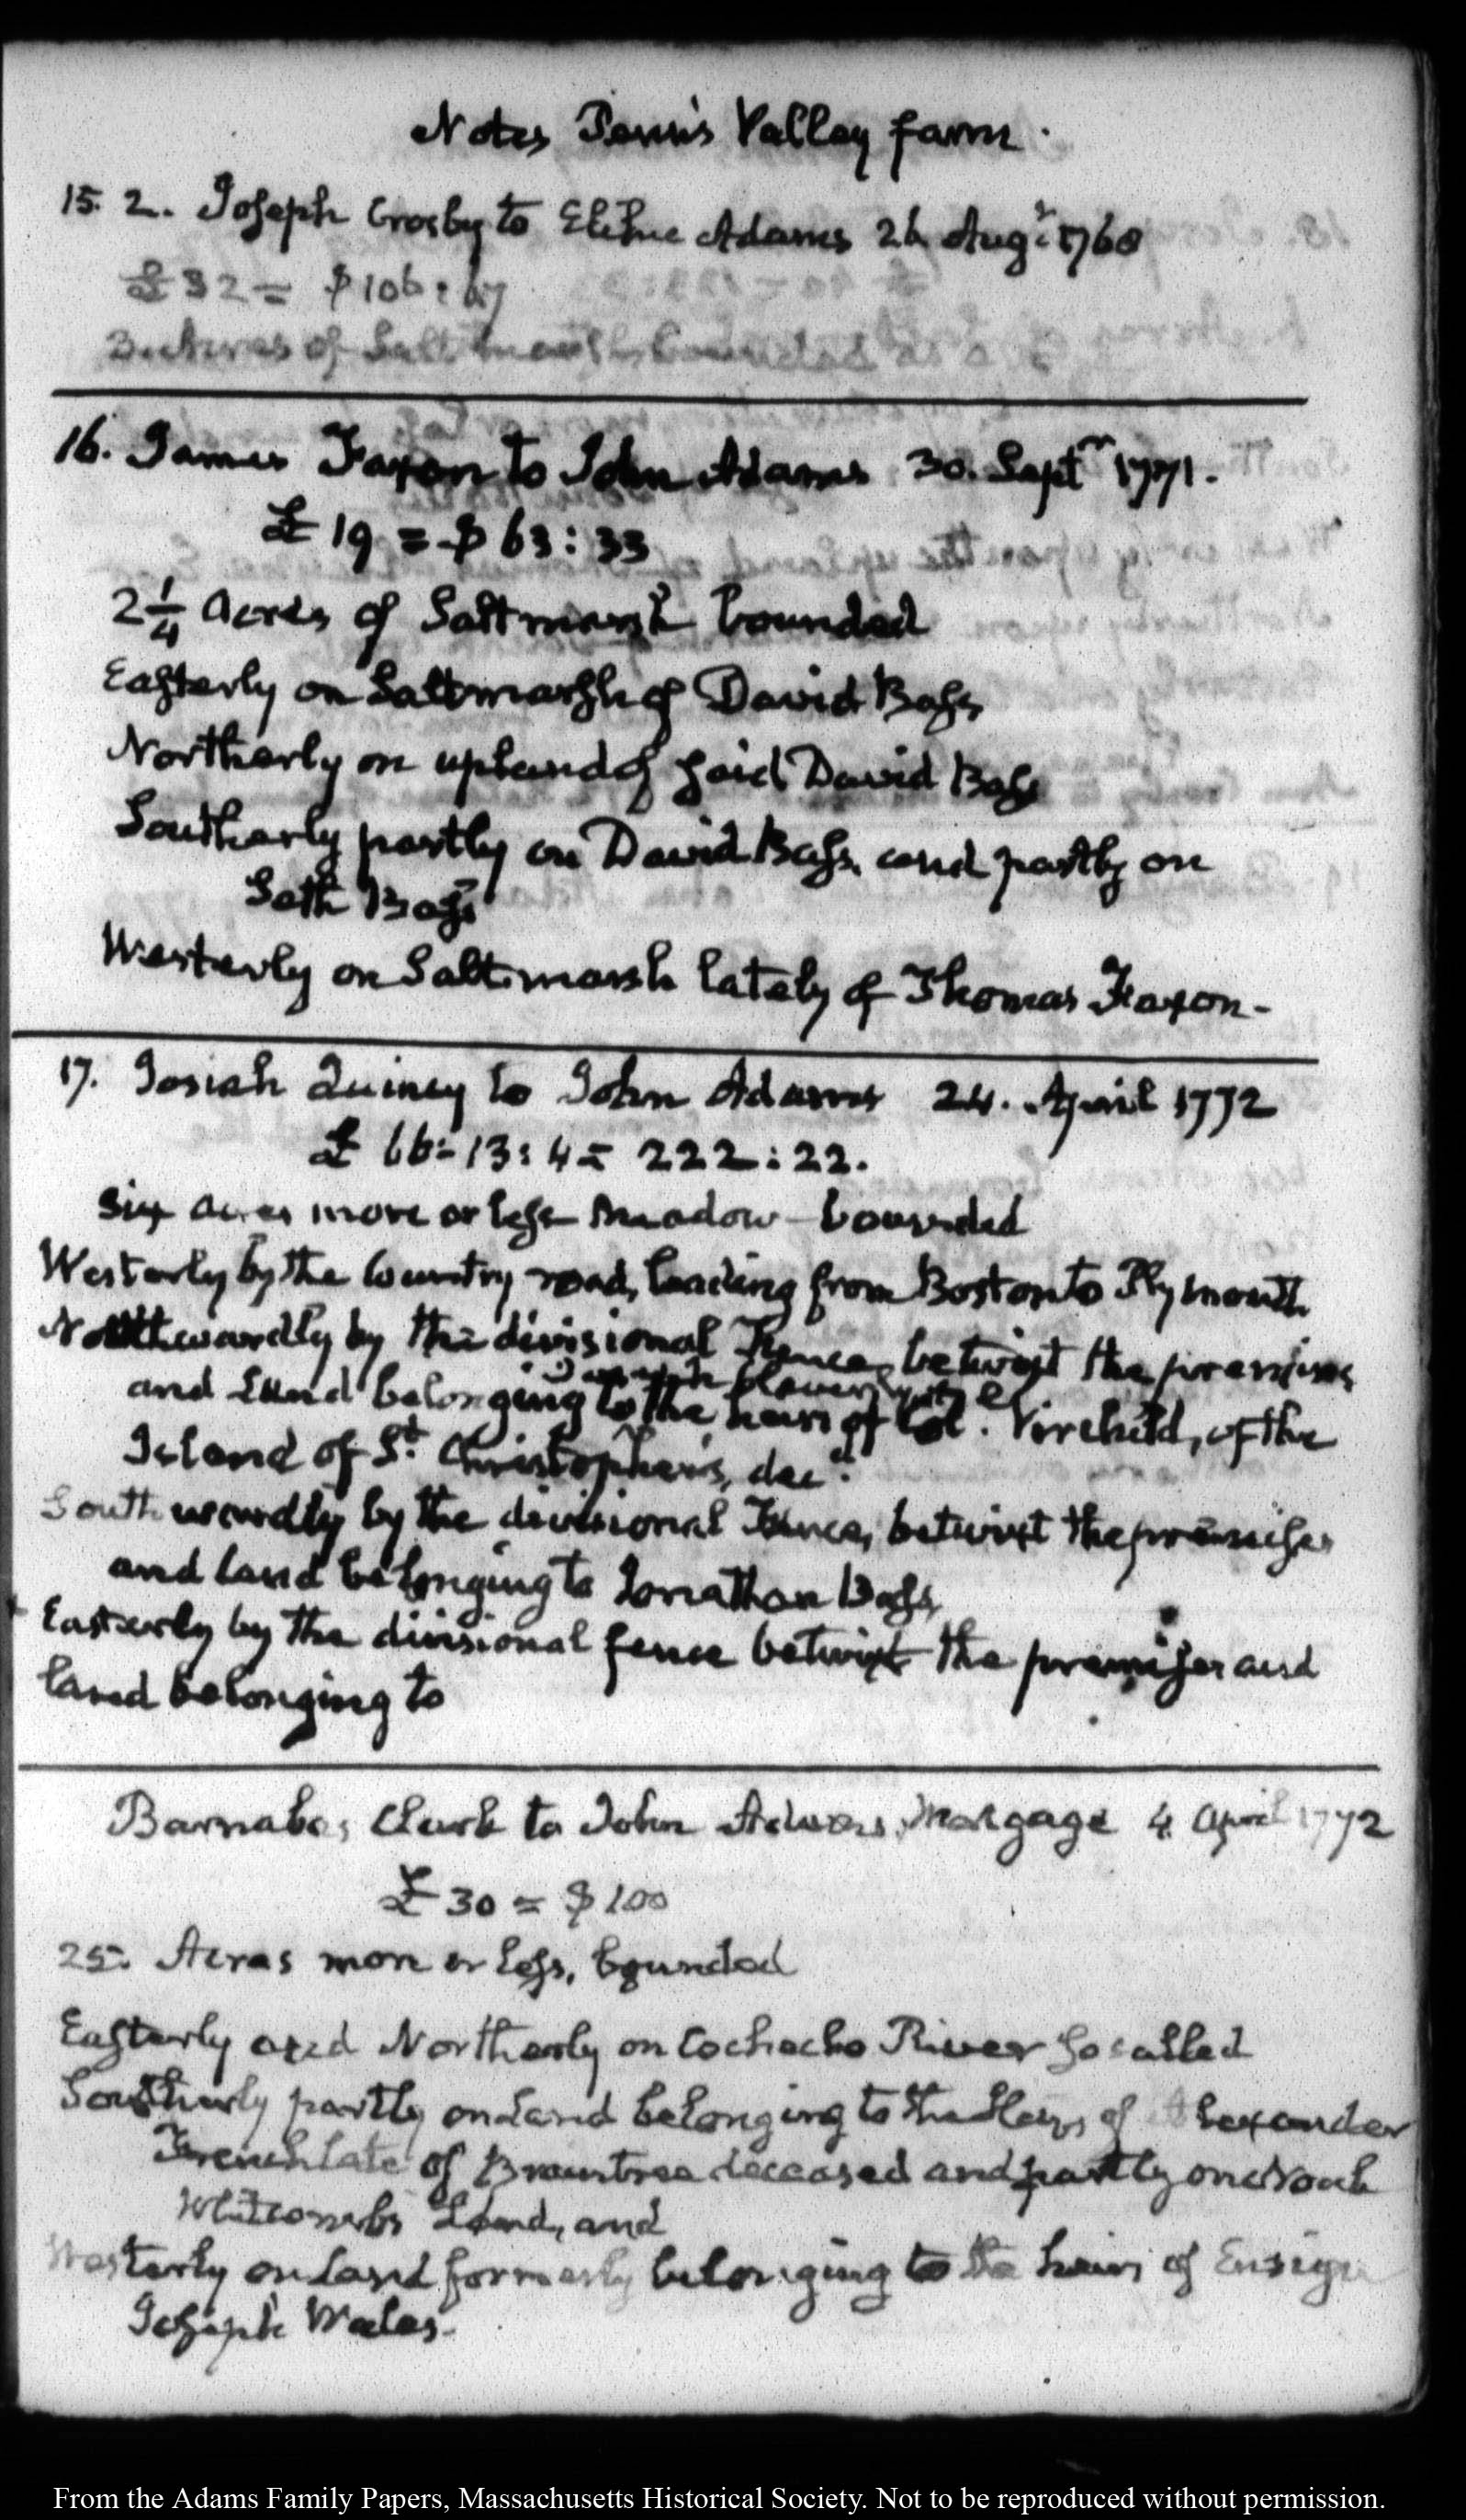 Notes Penn's Valley farm.
15. 2. Joseph Crosby to Elihu Adams 26 Augt 1768
£ 32 = $ 106:67
acres of Salt marsh, bounded as
16. James Faxon to John Adams 30. Septr 1771.
£ 19 = $ 63:33
2 1/4 acres of Saltmarsh bounded
Easterly on Saltmarsh of David Bass
Northerly on upland of said David Bass
Southerly partly on David Bass, and partly on
Seth Bass
Westerly on Saltmarsh lately of Thomas Faxon-
17. Josiah Quincy to John Adams 24. April 1772
£ 66=13:4= 222:22.
six acres more or less meadow bounded
Westerly by the Country road, leading from Boston to Plymouth
Northwardly by the divisional Fence, betwixt the premises
and Land belonging to the heirs of Col. Virchild, of the
Island of St. Christopher's, decd.
Southwardly by the divisional Fence, betwixt the premises
and land belonging to Jonathan Bass,
Easterly by the divisional fence betwixt the premises and
land belonging to
Barnabas Clark to John Adams, Mortgage 4 April 1772
£ 30 = $ 100
25. Acres more or less, bounded
Easterly and Northerly on Cochecho River so called
Southerly partly on Land belonging to the Heirs of Alexander
French late of Braintree deceased and partly on Noah
Whitcomb's Land, and
Westerly on Land formerly belonging to the heirs of Ensign
Joseph Wales.
From the Adams Family Papers, Massachusetts Historical Society. Not to be reproduced without permission.